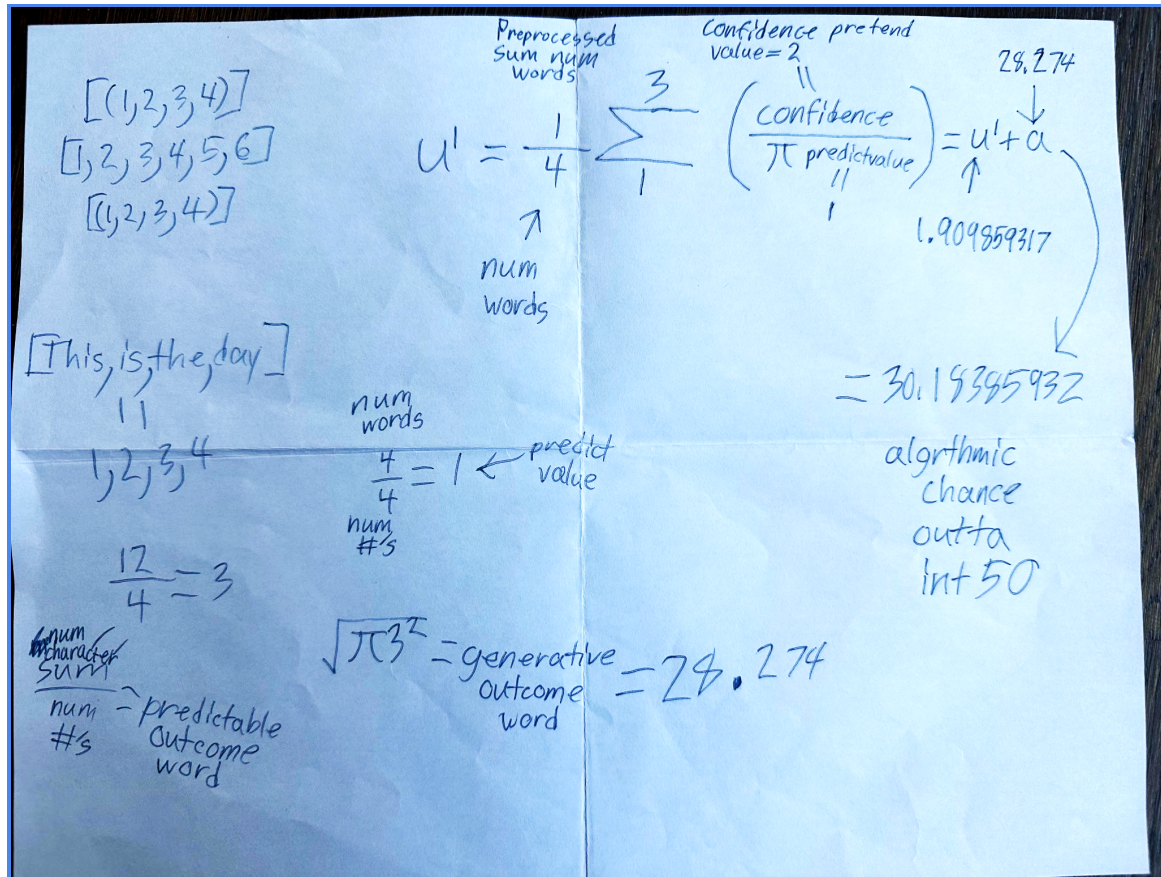 [(1,2,3,4)]
[1,2,3,4,5,6]
[(1,2,3,4)]
Preprocessed
sum num
words
Confidence pretend
value=2
28.274
u' = 1/4 3 Σ 1 (confidence / π predictvalue) = u'+a
1
num
words
1.909859317
= 30.18385932
algrthmic
chance
outta
int 50
[This,is,the,day]
1,2,3,4
num
words
4/4 = 1 ← predict
value
num
#'s
12/4 = 3
num
character
sum
num
#'s
= predictable
outcome
word
√π3² = generative
outcome
word
= 28.274